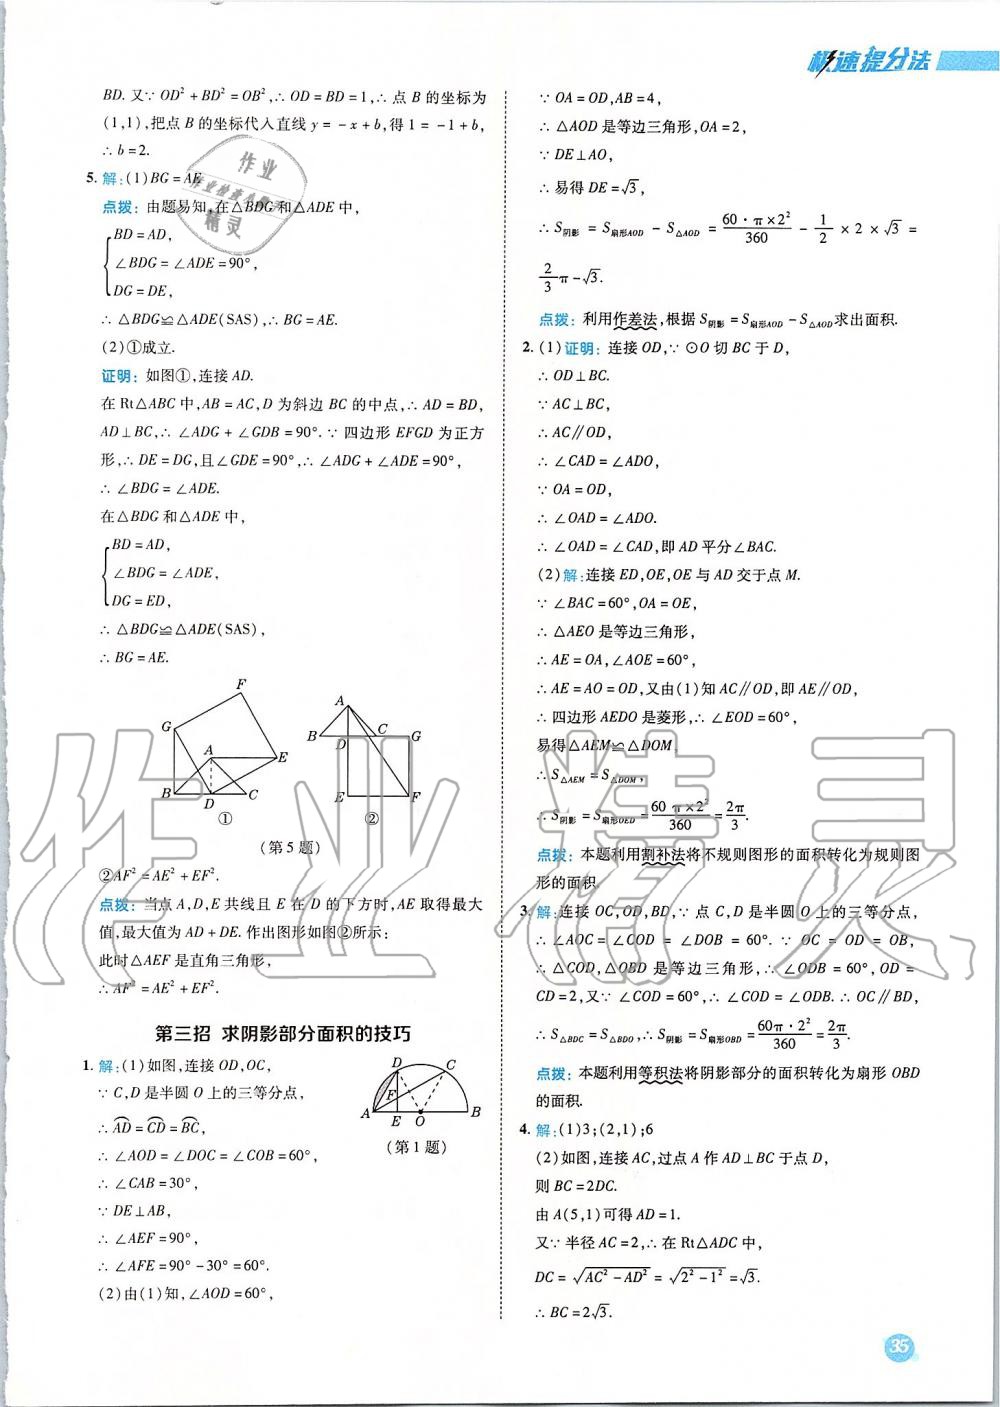 极速提分法
BD. 又∵ OD² + BD² = OB², ∴ OD = BD = 1, ∴ 点 B 的坐标为
(1,1), 把点 B 的坐标代入直线 y = - x + b, 得 1 = - 1 + b,
∴ b = 2.
5. 解: (1) BG = AE
点拨: 由题易知, 在△BDG 和△ADE 中,
BD = AD,
∠BDG = ∠ADE = 90°,
DG = DE,
∴ △BDG≌△ADE(SAS), ∴ BG = AE.
(2)①成立.
证明: 如图①, 连接 AD.
在 Rt△ABC 中, AB = AC, D 为斜边 BC 的中点, ∴ AD = BD,
AD⊥BC, ∴ ∠ADG + ∠GDB = 90°. ∵ 四边形 EFGD 为正方
形, ∴ DE = DG, 且∠GDE = 90°, ∴ ∠ADG + ∠ADE = 90°,
∴ ∠BDG = ∠ADE.
在△BDG 和△ADE 中,
BD = AD,
∠BDG = ∠ADE,
DG = ED,
∴ △BDG≌△ADE(SAS),
∴ BG = AE.
F
G
A
E
B
D
C
①
A
B
D
C
G
E
F
②
(第 5 题)
②AF² = AE² + EF².
点拨: 当点 A, D, E 共线且 E 在 D 的下方时, AE 取得最大
值, 最大值为 AD + DE. 作出图形如图②所示:
此时△AEF 是直角三角形,
∴ AF² = AE² + EF².
第三招 求阴影部分面积的技巧
1. 解: (1) 如图, 连接 OD, OC,
∵ C, D 是半圆 O 上的三等分点,
∴ A͡D = C͡D = B͡C,
∴ ∠AOD = ∠DOC = ∠COB = 60°,
∴ ∠CAB = 30°,
∵ DE⊥AB,
∴ ∠AEF = 90°,
∴ ∠AFE = 90° - 30° = 60°.
(2) 由(1)知, ∠AOD = 60°,
D
C
F
A
E
O
B
(第 1 题)
∵ OA = OD, AB = 4,
∴ △AOD 是等边三角形, OA = 2,
∵ DE⊥AO,
∴ 易得 DE = √3,
∴ S阴影 = S扇形AOD - S△AOD = 60·π×2²/360 - 1/2 × 2 × √3 =
2/3π - √3.
点拨: 利用作差法, 根据 S阴影 = S扇形AOD - S△AOD求出面积.
2. (1) 证明: 连接 OD, ∵ ⊙O 切 BC 于 D,
∴ OD⊥BC.
∵ AC⊥BC,
∴ AC∥OD,
∴ ∠CAD = ∠ADO,
∵ OA = OD,
∴ ∠OAD = ∠ADO.
∴ ∠OAD = ∠CAD, 即 AD 平分∠BAC.
(2) 解: 连接 ED, OE, OE 与 AD 交于点 M.
∵ ∠BAC = 60°, OA = OE,
∴ △AEO 是等边三角形,
∴ AE = OA, ∠AOE = 60°,
∴ AE = AO = OD, 又由(1)知 AC∥OD, 即 AE∥OD,
∴ 四边形 AEDO 是菱形, ∴ ∠EOD = 60°,
易得△AEM≌△DOM,
∴ S△AEM = S△DOM,
∴ S阴影 = S扇形OED = 60 π×2²/360 = 2π/3.
点拨: 本题利用割补法将不规则图形的面积转化为规则图
形的面积.
3. 解: 连接 OC, OD, BD, ∵ 点 C, D 是半圆 O 上的三等分点,
∴ ∠AOC = ∠COD = ∠DOB = 60°. ∵ OC = OD = OB,
∴ △COD, △OBD 是等边三角形, ∴ ∠ODB = 60°, OD =
CD = 2, 又∵ ∠COD = 60°, ∴ ∠COD = ∠ODB. ∴ OC∥BD,
∴ S△BDC = S△BDO, ∴ S阴影 = S扇形OBD = 60π·2²/360 = 2π/3.
点拨: 本题利用等积法将阴影部分的面积转化为扇形 OBD
的面积.
4. 解: (1)3; (2,1); 6
(2) 如图, 连接 AC, 过点 A 作 AD⊥BC 于点 D,
则 BC = 2DC.
由 A(5,1) 可得 AD = 1.
又∵ 半径 AC = 2, ∴ 在 Rt△ADC 中,
DC = √(AC² - AD²) = √(2² - 1²) = √3.
∴ BC = 2√3.
35
作业
作业检查小助手
精灵
作业精灵